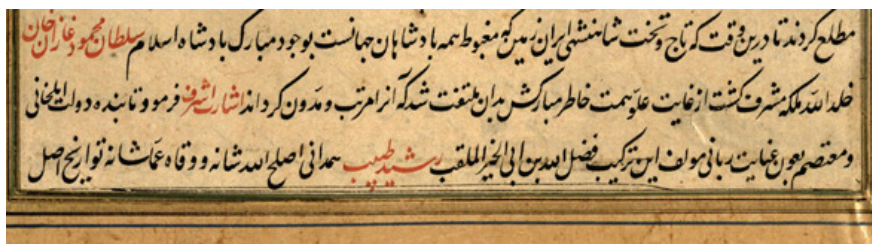 مطلع کردند تا درین وقت که تاج و تخت شاهنشهی ایران زمین که مغبوط همه پادشاهان جهانست بوجود مبارک پادشاه اسلام سلطان محمود غازان خان
خلد الله ملکه مشرف کشت از غایت علو همت خاطر مبارکش بدان ملتفت شد که آنرا مرتب و مدون کرداند اشارت اشرف فرمود تا بنده دولت ایلخانی
و معتصم بعون عنایت ربانی مولف این ترکیب فضل الله بن ابی الخیر الملقب رشید طبیب همدانی اصلح الله شانه و وقاه عما شانه تواریخ اصل